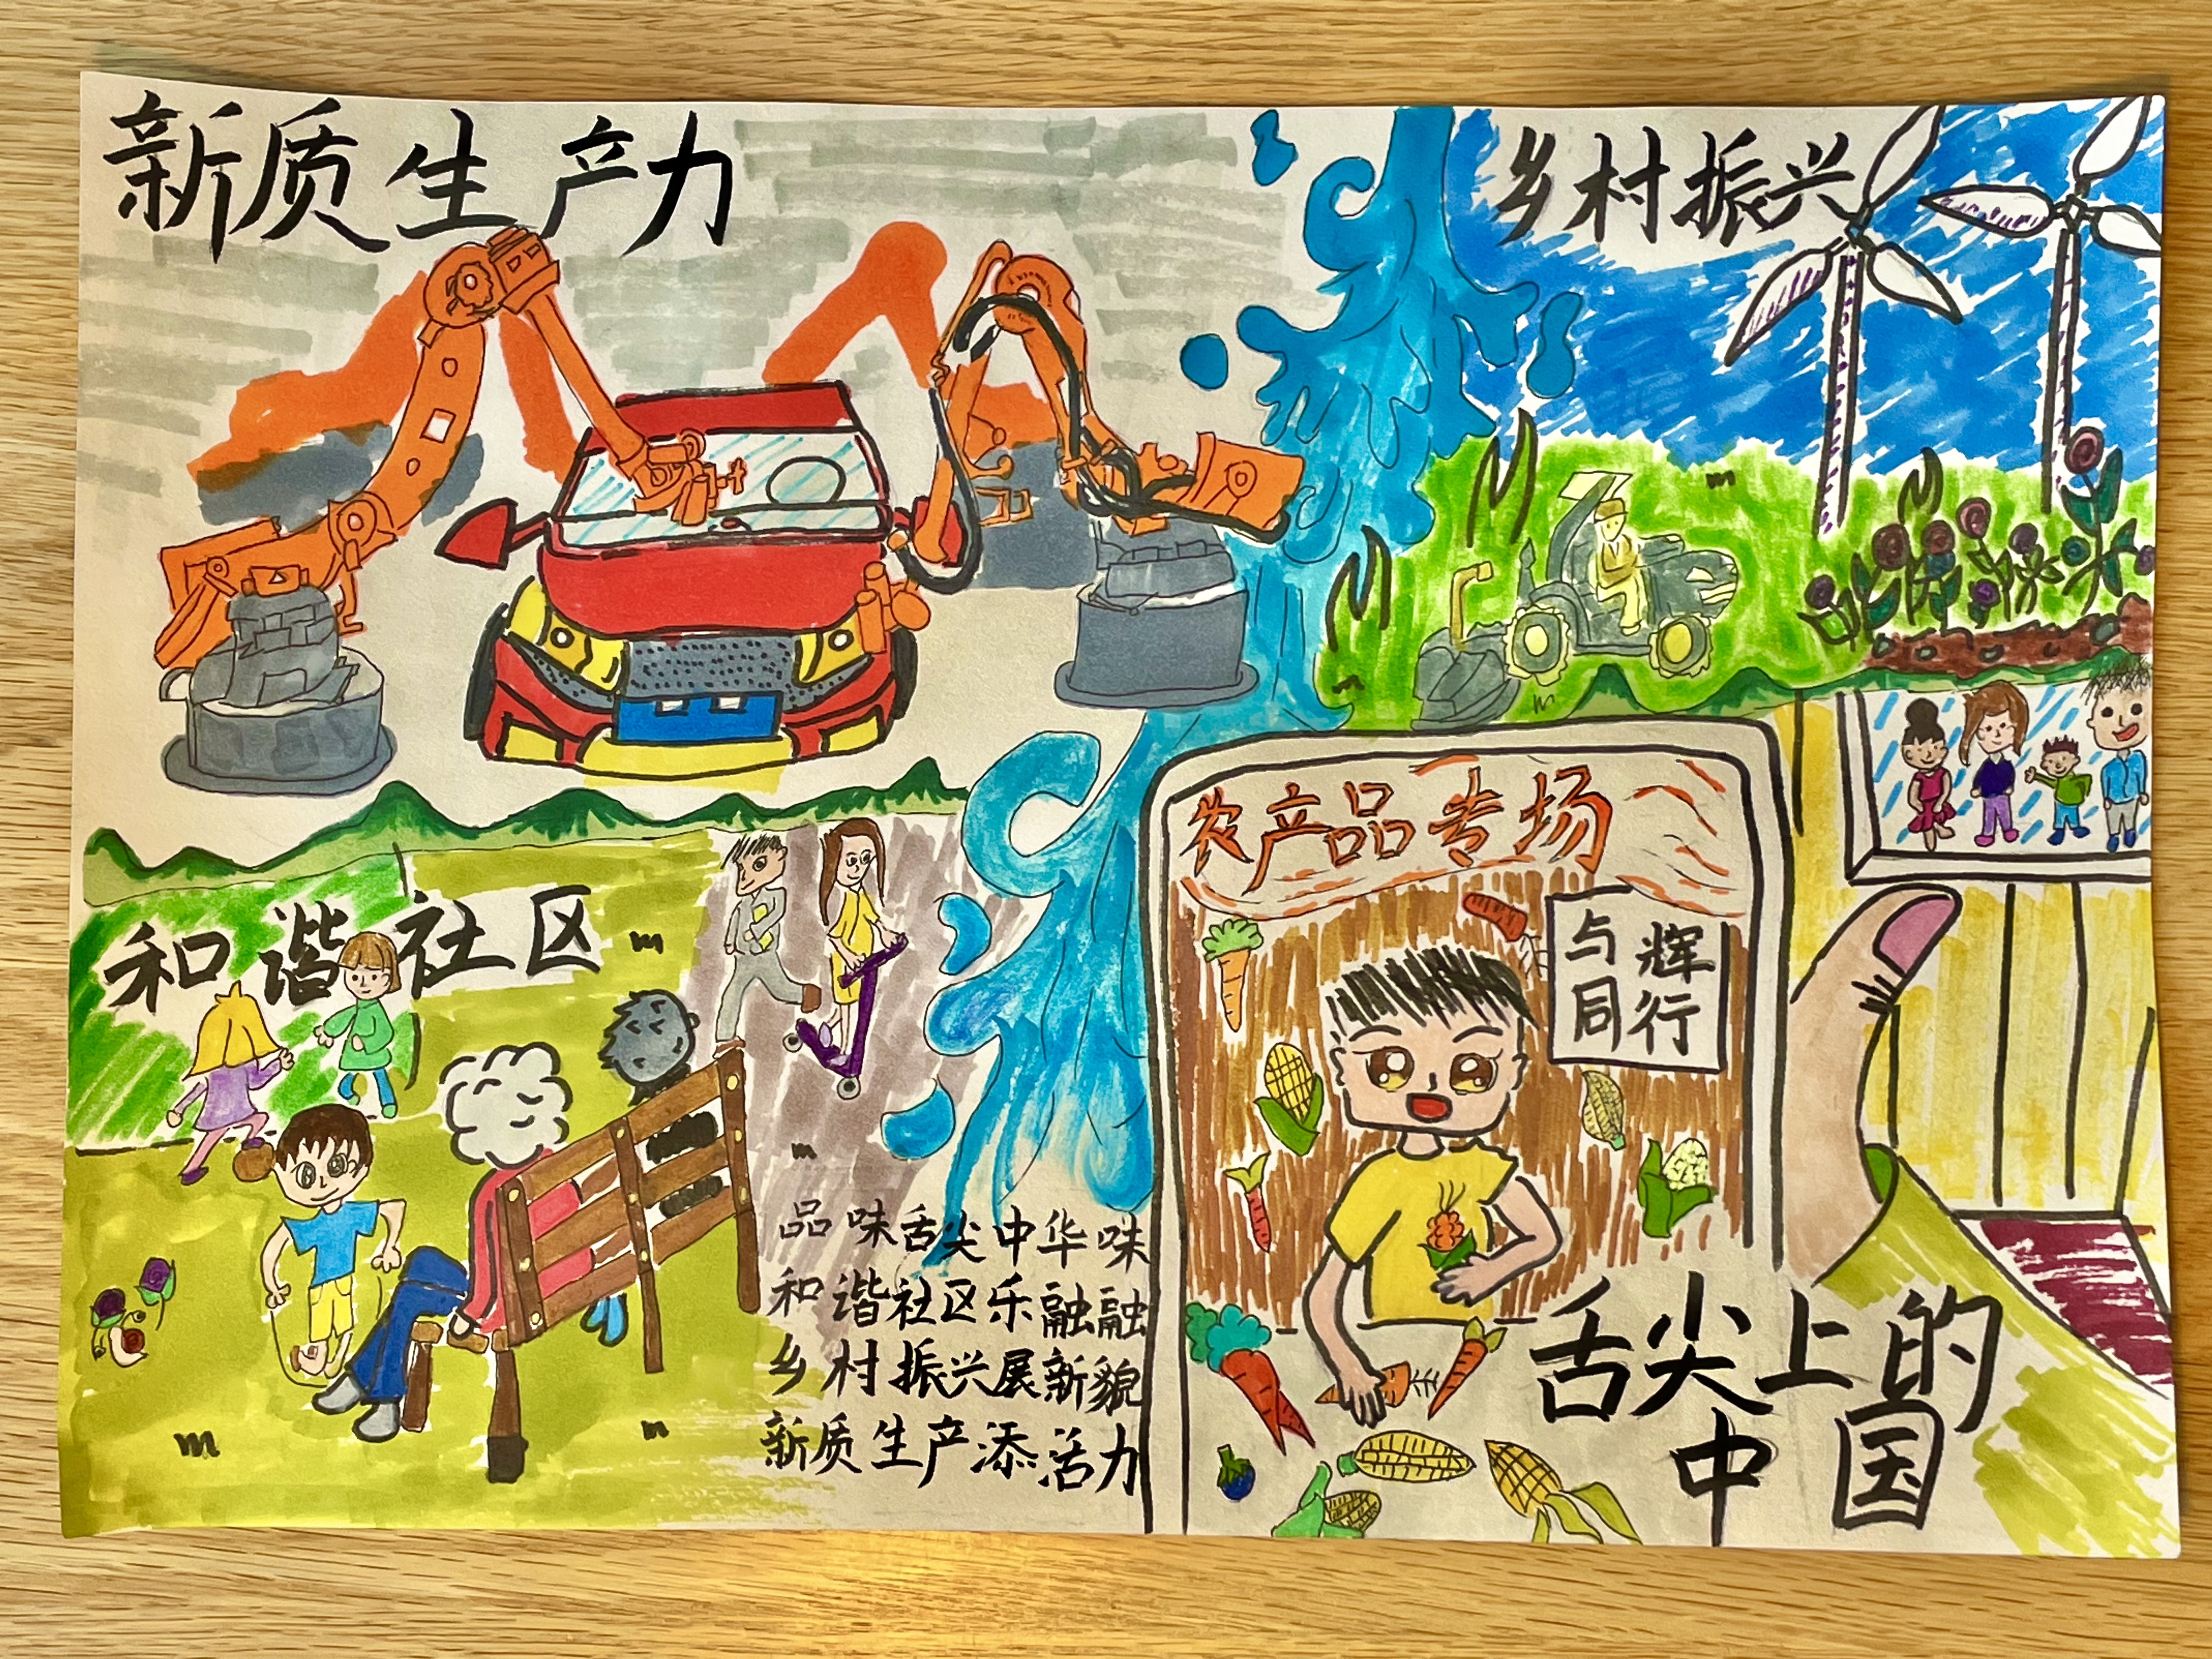 新质生产力
乡村振兴
和谐社区
农产品专场
与辉
同行
品味舌尖中华味
和谐社区乐融融
乡村振兴展新貌
新质生产添活力
舌尖上的
中国